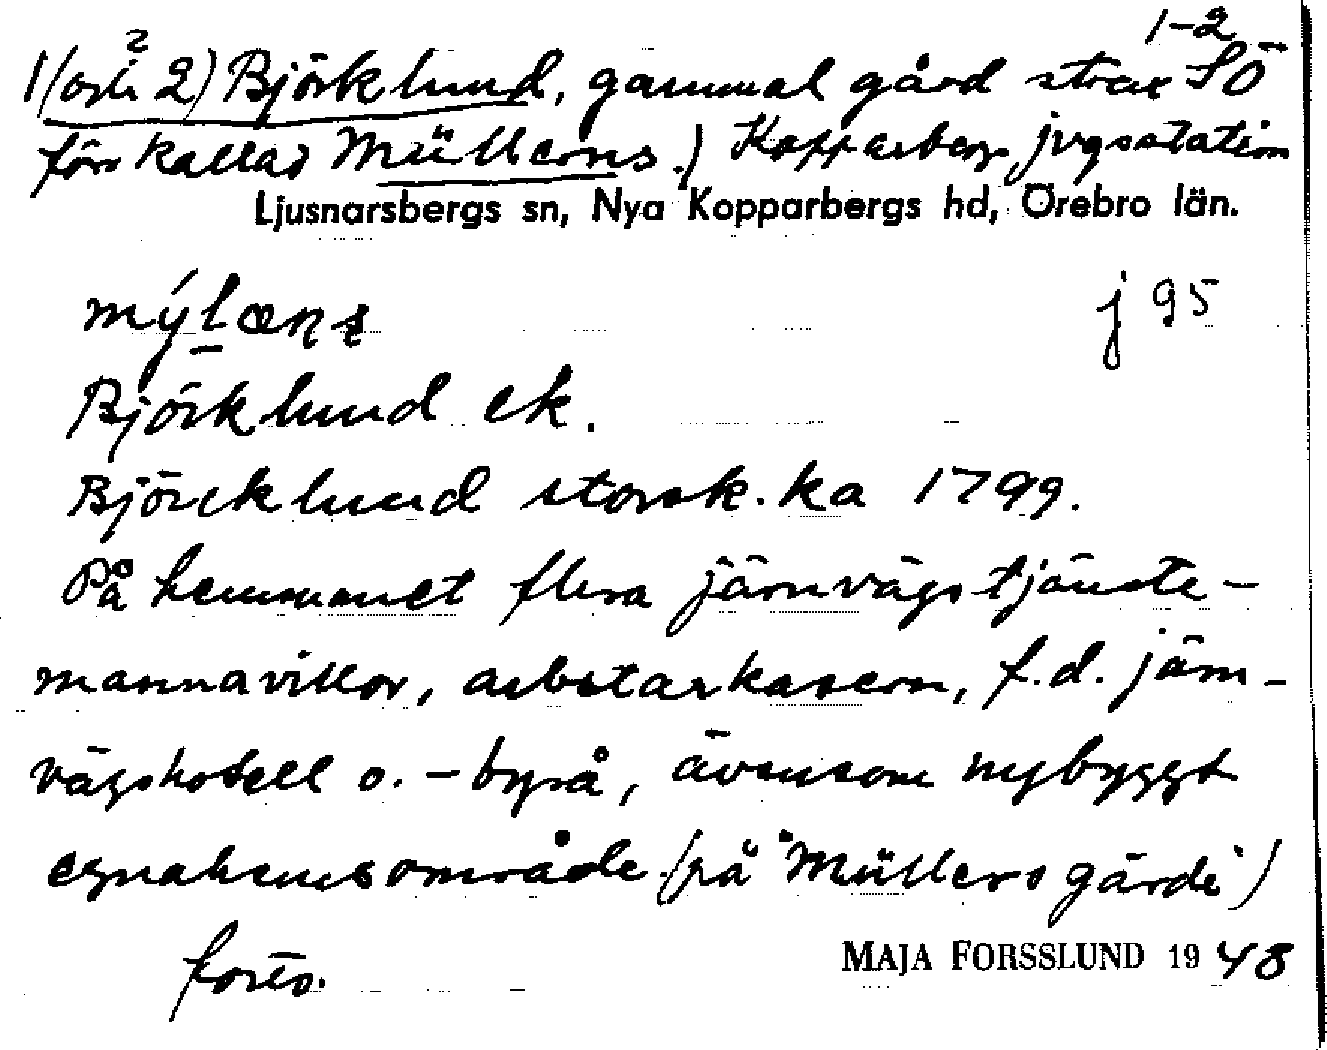 1-2
1/(och 2) Björklund, gammal gård strax SÖ
förr kallad Müllerns.) Kopparbergs jvgsstation
Ljusnarsbergs sn, Nya Kopparbergs hd, Örebro län.
mýlæṇṣ j 95
Björklund ek.
Björcklund storsk.ka 1799.
På hemmanet flera järnvägstjänste-
mannavillor, arbetarkasern, f.d. järn-
vägshotell o. -byrå, ävensom nybyggt
egnahemsområde (på "Müllers gärde")
forts.
MAJA FORSSLUND 1948